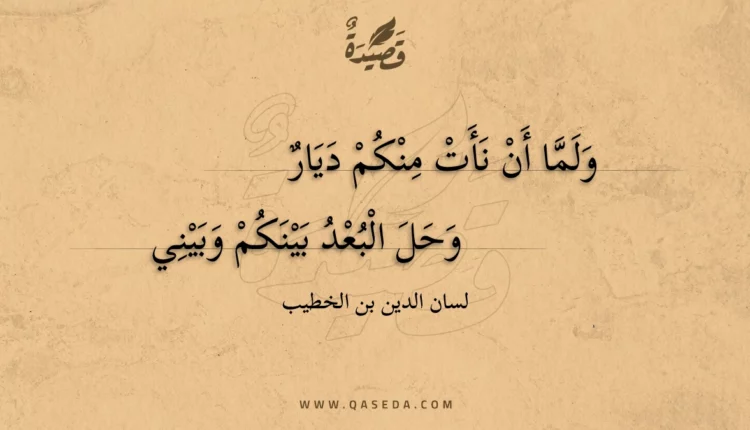 قَصِيْدَةٌ
وَلَمَّا أَنْ نَأَتْ مِنْكُمْ دَيَارٌ
وَحَلَ الْبُعْدُ بَيْنَكُمْ وَبَيْنِي
لسان الدين بن الخطيب
WWW.QASEDA.COM